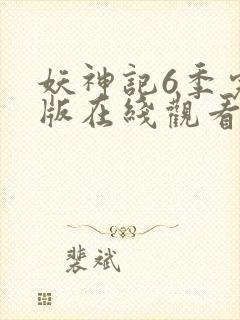 妖神記6季
版在綫觀看
裴斌